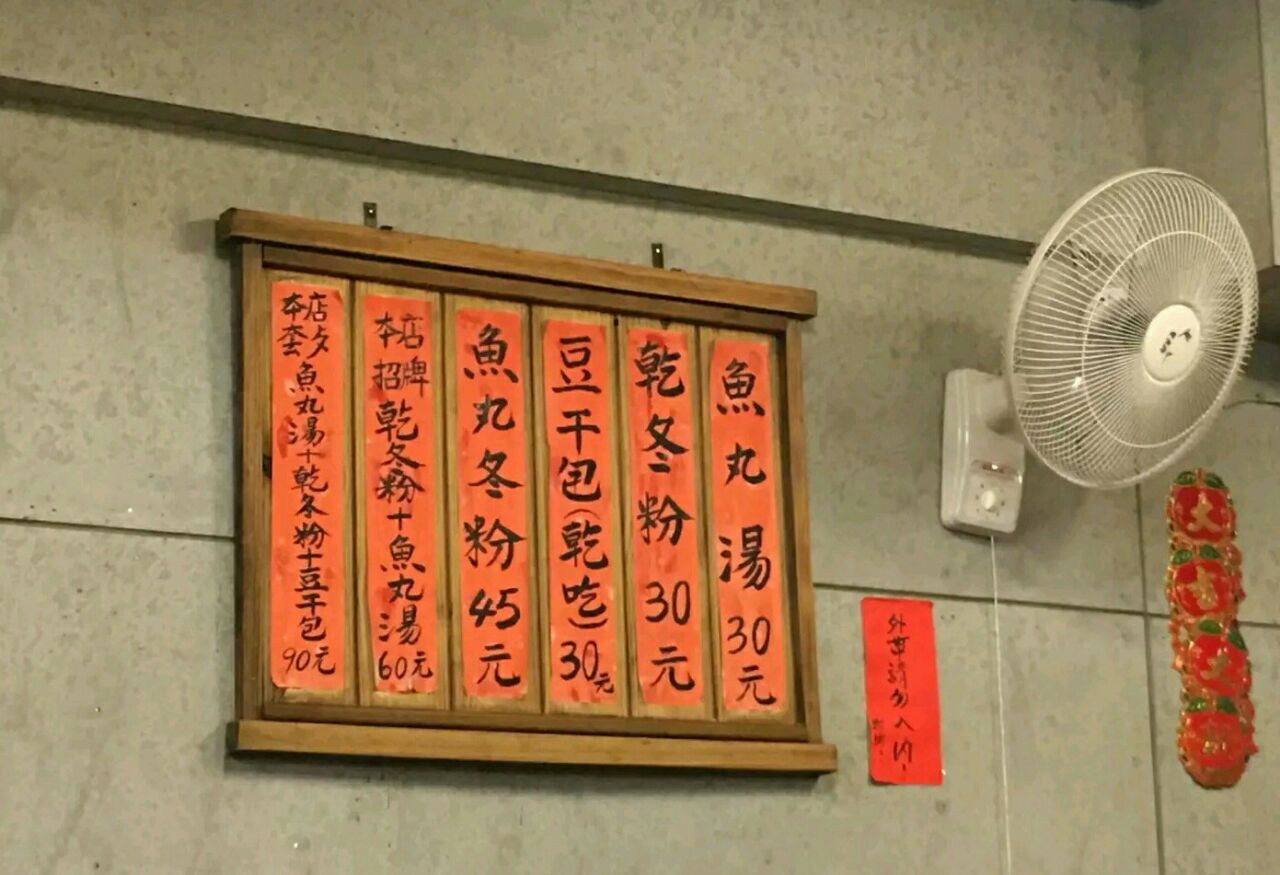 魚丸湯30元
乾冬粉30元
豆干包(乾吃)30元
魚丸冬粉45元
本店招牌乾冬粉+魚丸湯60元
本店套夕魚丸湯+乾冬粉+豆干包90元
外帶請勿入內
大吉大